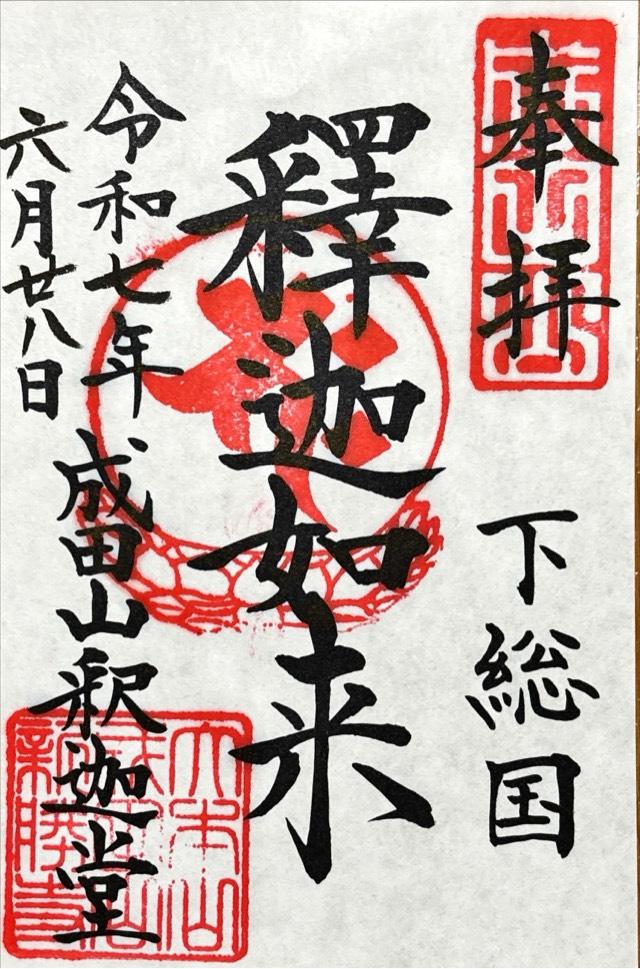 奉拝
下総国
釋迦如来
令和七年
六月廿八日
成田山釈迦堂
大本山
成田山
新勝寺